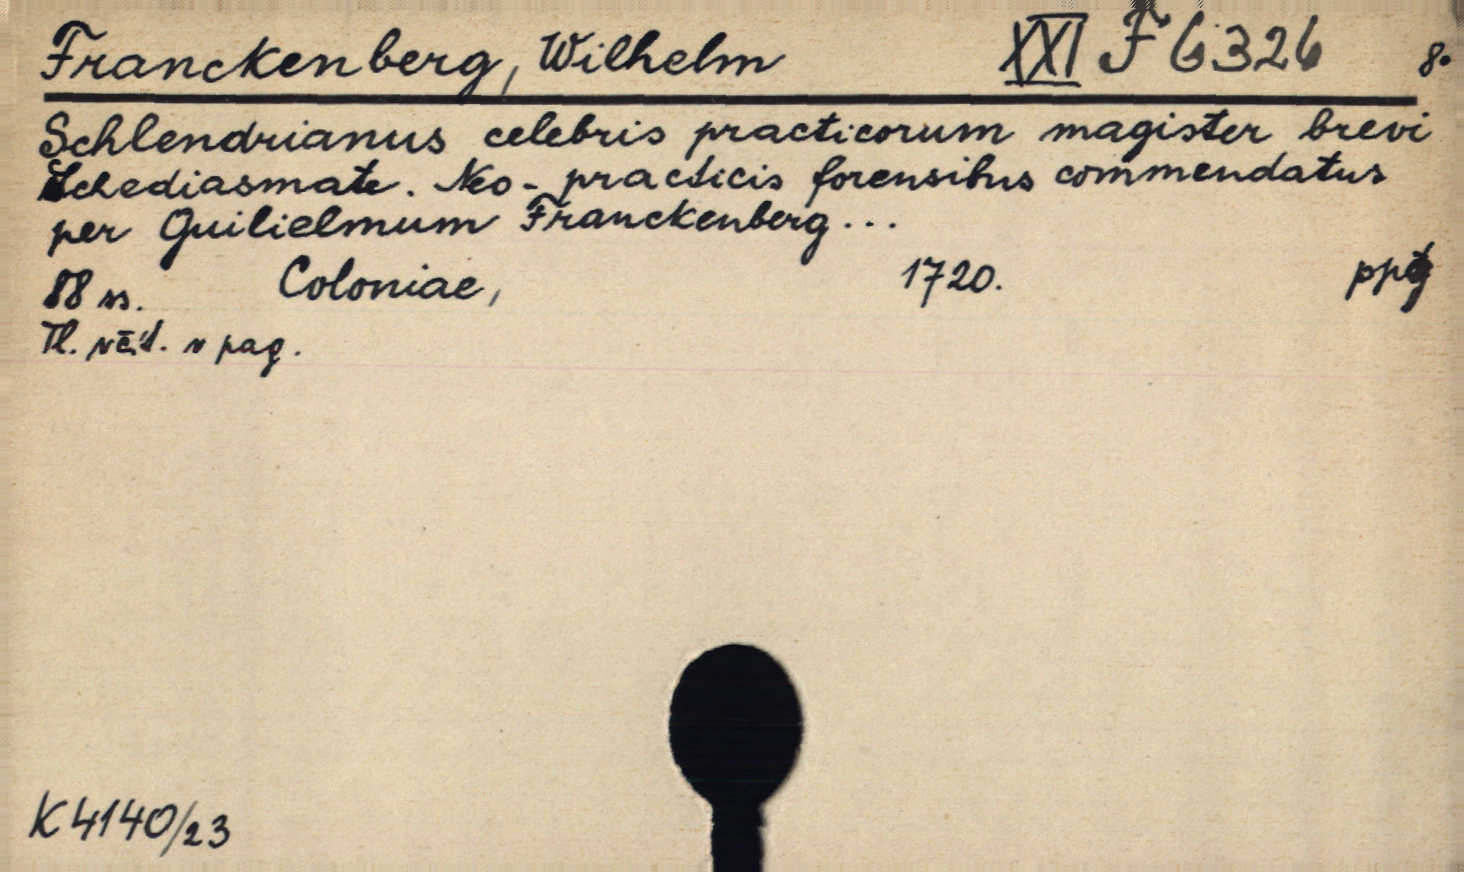 Franckenberg, Wilhelm XXI F 6326 8°
Schlendrianus celebris practicorum magister brevi
Schediasmate. Neo-practicis forensibus commendatus
per Guilielmum Franckenberg...
88 ss. Coloniae, 1720.
Tl. včet. v pag.
K 4140/23